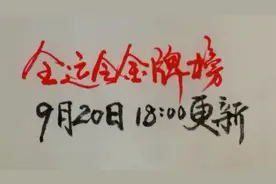 全运会金牌榜
9月20日 18:00更新